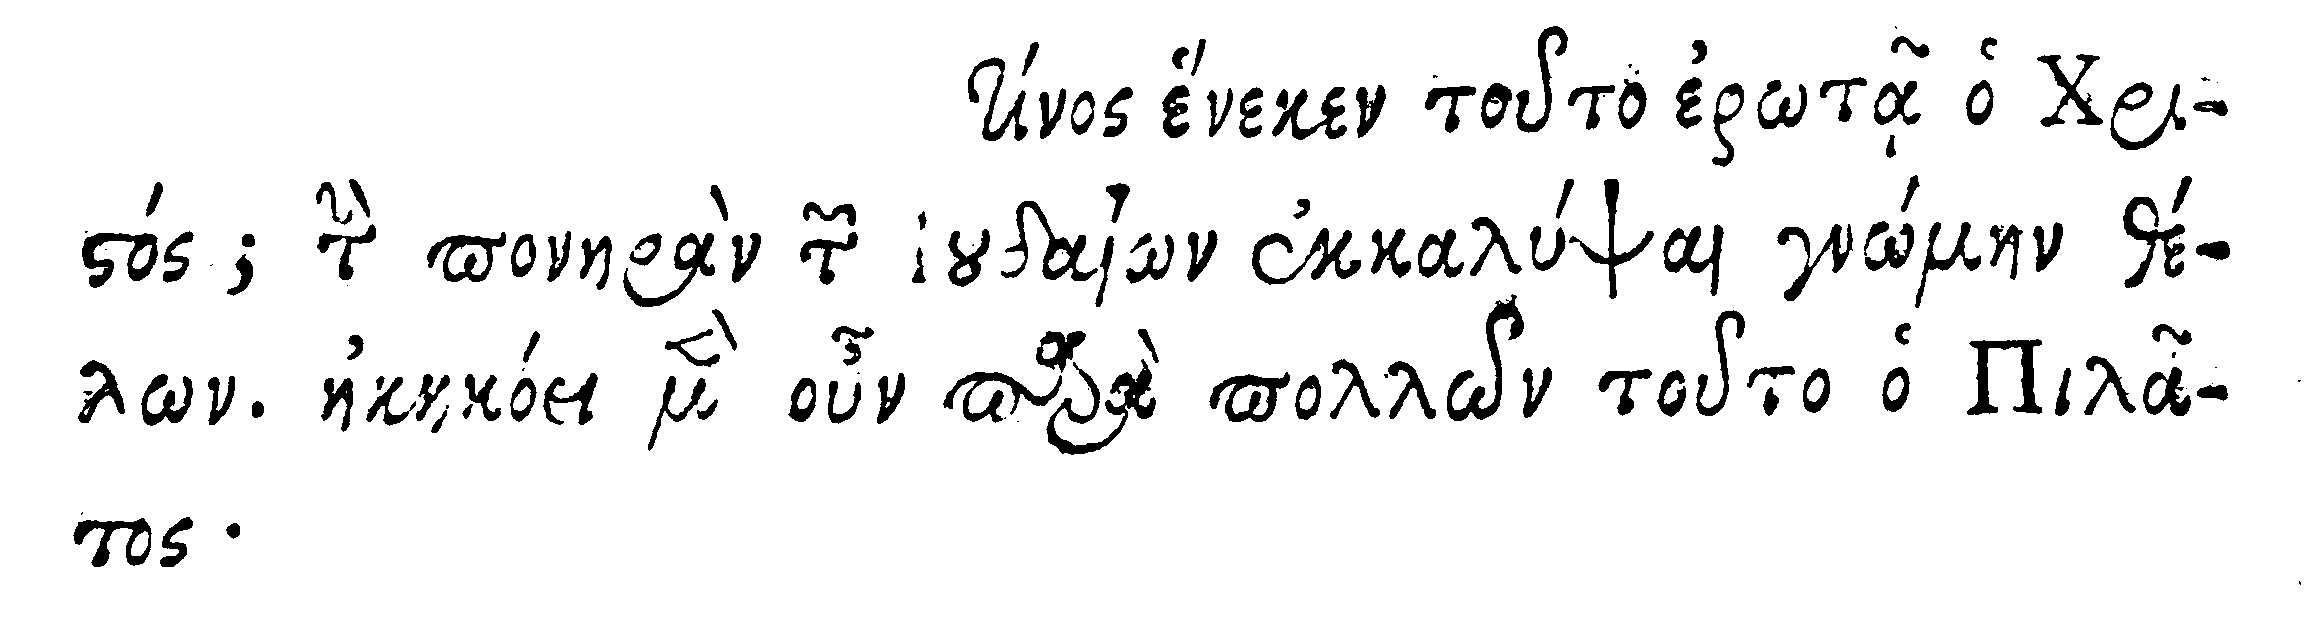 τίνος ἕνεκεν τοῦτο ἐρωτᾷ ὁ Χρι-
στός; τὴν πονηρὰν τῶν ἰουδαίων ἐκκαλύψαι γνώμην θέ-
λων. ἠκηκόει μὲν οὖν παρὰ πολλῶν τοῦτο ὁ Πιλᾶ-
τος.